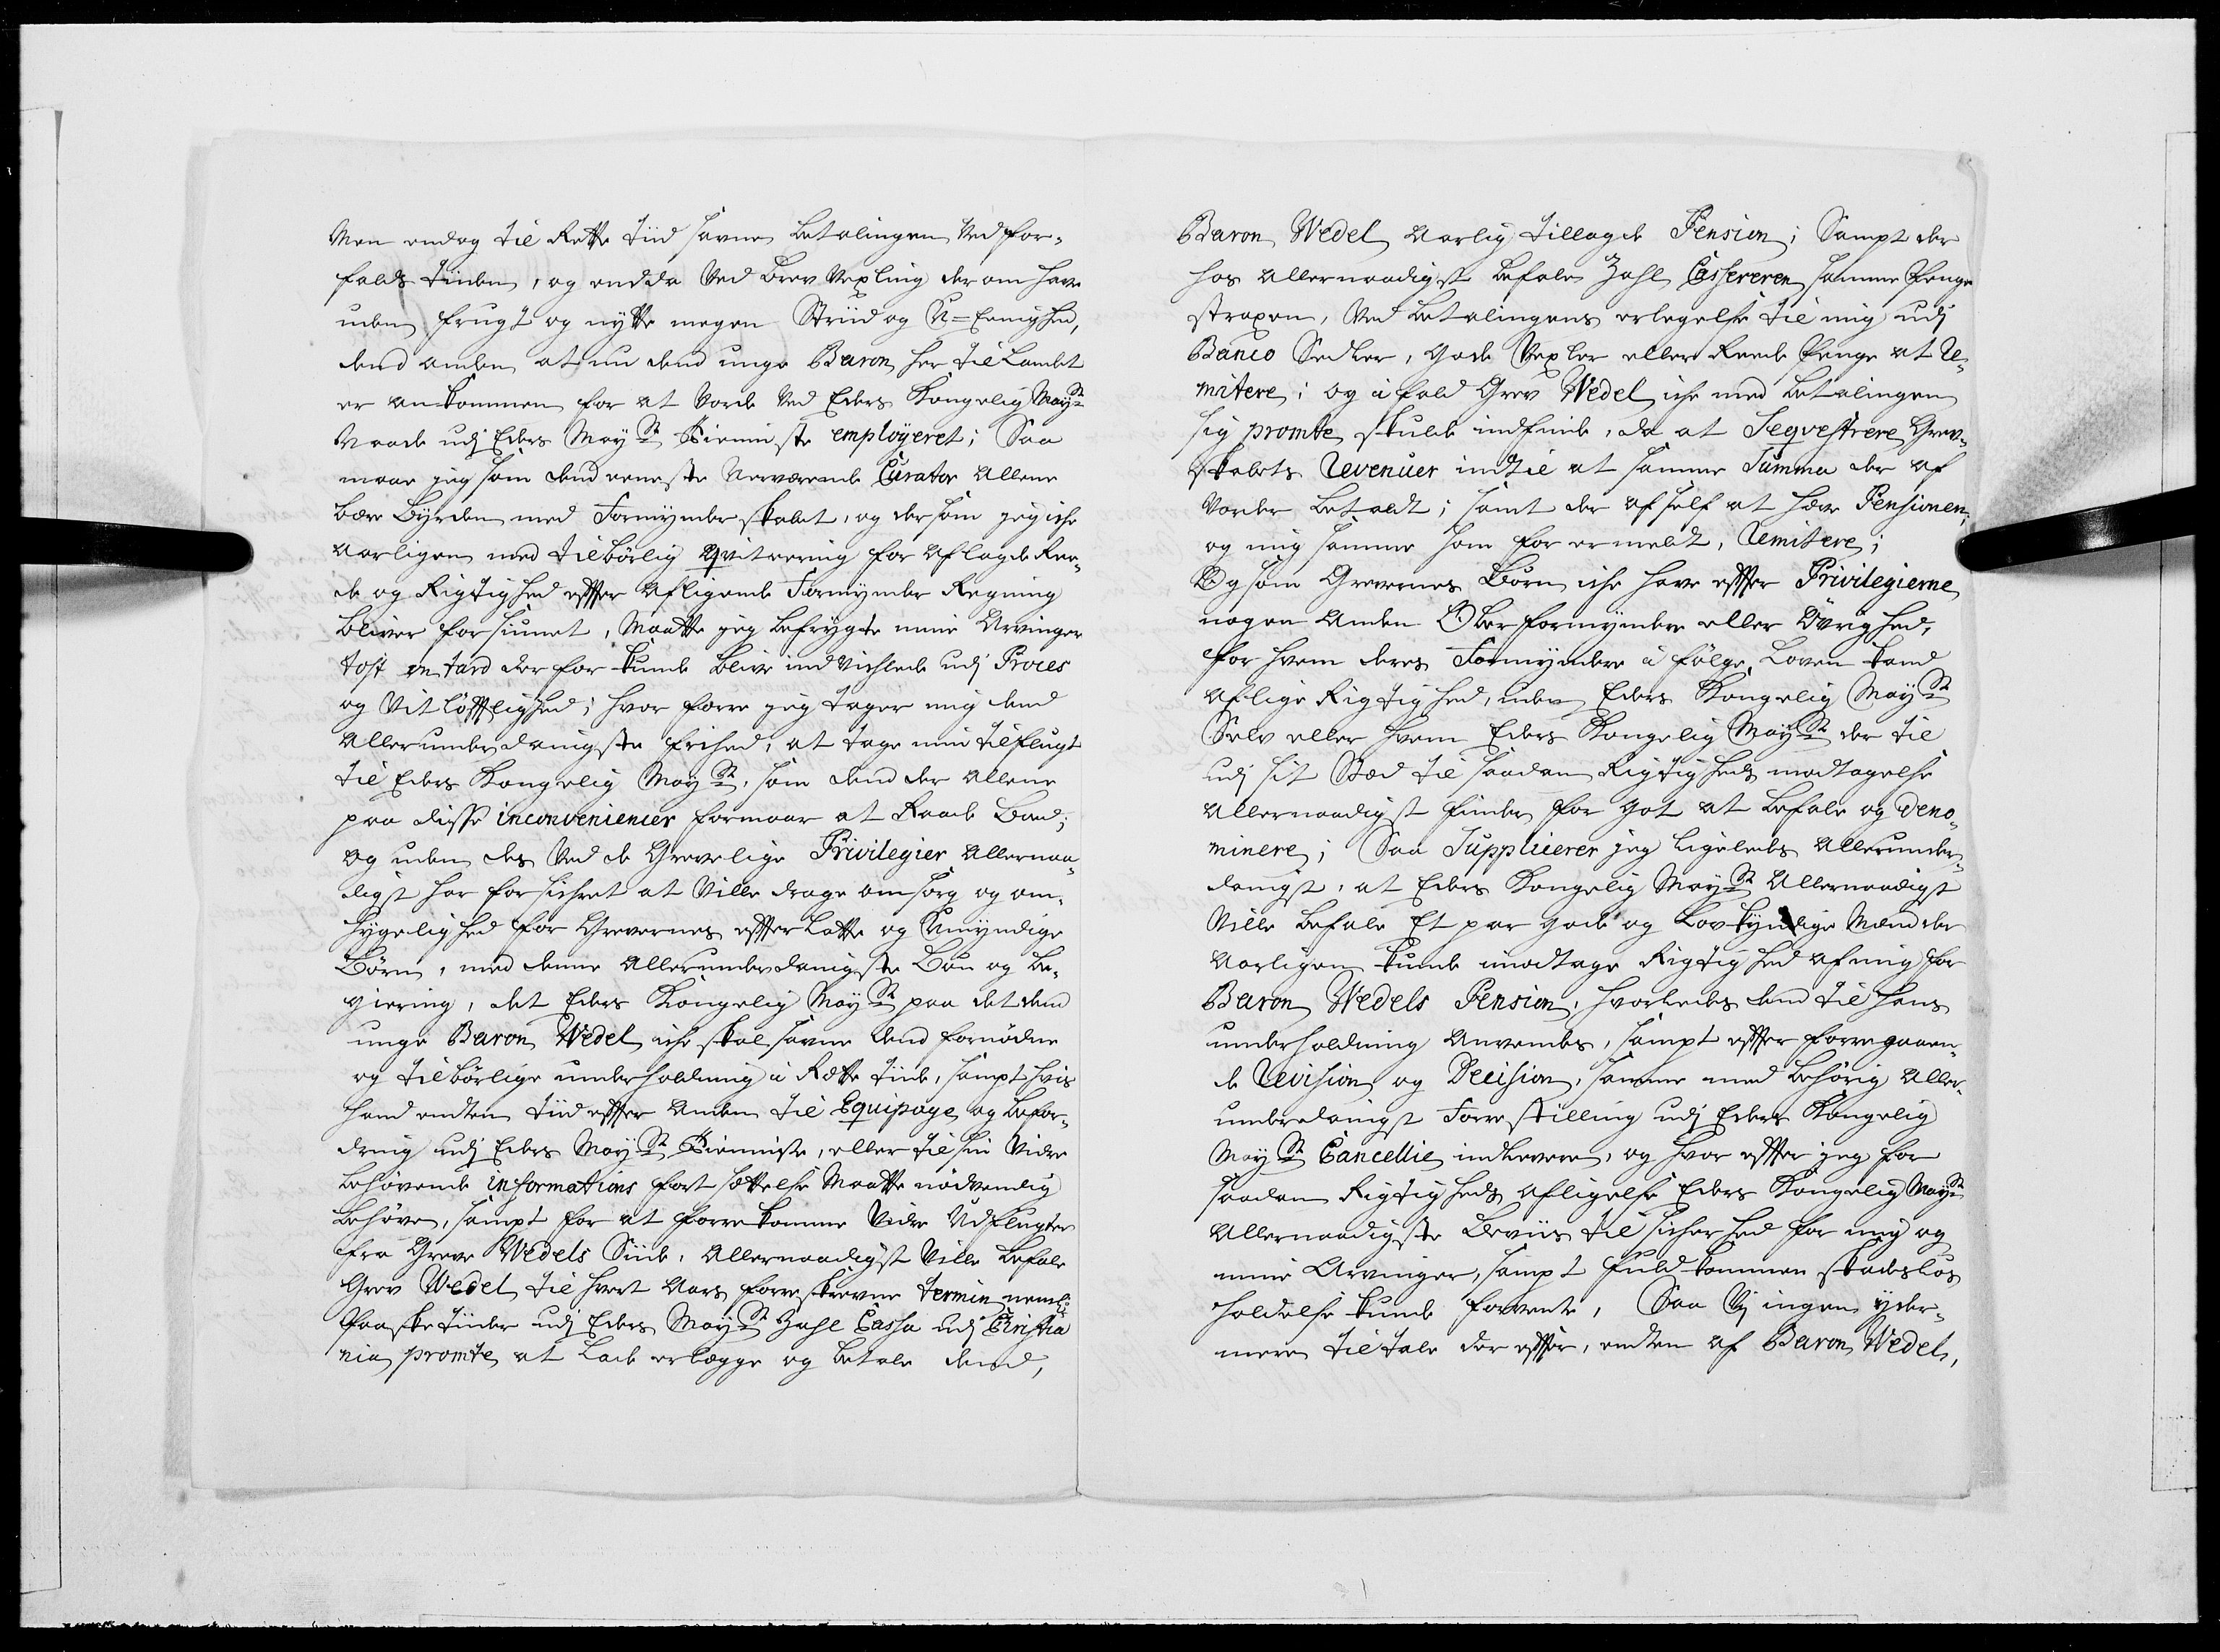 Men endog til Rette tiid savne betalingen ved for-
falds tiiden, og endda ved brev vexling der om have
uden frugt og nytte megen Striid og U=Eenighed,
dend anden at nu dend unge Baron her til Landet
er ankommen for at vorde ved Eders Kongelig Mayst:
Naade udj Eders Mayst: Tienniste employeret; Saa
maae jeg som dend eeneste nerværende Curator allene
bære byrden med Formynderskabet, og dersom jeg iche
aarligen med tilbørlig qvitering for aflagde Ree-
de og Rigtighed effter afligende Formynder Regning
bliver forsiunet, Maatte jeg befrygte mine Arvinger
tost on tard der for kunde blive indvichlede udj Proces
og vitløfftighed; hvor forre jeg tager mig dend
allerunderdanigste frihed, at tage min tilflugt
til Eders Kongelig Mayst:, som dend der allene
paa disse inconveniencier formaar at Raade Bood;
og uden des ved de Grevelige Privilegier allernaa-
digst har forsichret at ville drage omsorg og om-
hygelighed for Grevernes effterlatte og Umyndige
Børn, med denne allerunderdanigste Bøn og be-
giering, det Eders Kongelig Mayst: paa det dend
unge Baron Wedel iche skal savne dend fornødne
og tilbørlige underholdning i Rette tiide, sampt hvis
hand endten tiid effter anden til Equipage og befor-
dring udj Eders Mayst: Tienniste, eller til sin vidre
behøvende informations fortsettelse Maatte nødvendig
behøve, sampt for at forrekomme vidre udflugter
fra Greve Wedels Siide, allernaadigst ville befale
Grev Wedel til hvert Aars forreskrevne termin neml:
Paaske tiider udj Eders Mayst: Zahl Cassa udj Christia
nia promte at lade erlægge og betale dend,
Baron Wedel aarlig tillagde Pension; Sampt der
hos allernaadigst befale Zahl Cassereren samme Penge
straxen, ved betalingens erlegelse til mig udj
Banco Sedler, gode Vexler eller Reede Penge at Re-
mitere; og i fald Grev Wedel iche med betalingen
sig promte skulde indfinde, da at Seqvestrere Grev-
skabets Revenuer indtil at samme Summa der af
vorder betalt; samt der af self at hæve Pensionen;
og mig samme som for ermeldt, Remitere;
Og som Grevernes Børn iche have effter Privilegierne
nogen anden Ober formyndere eller Øvrighed,
for hvem deres Formyndere i følge Loven kand
aflige Rigtighed, uden Eders Kongelig Mayst:
Selv eller hvem Eders Kongelig Mayst: der til
udj sit Sted til saadan Rigtigheds modtagelse
allernaadigst finder for got at befale og deno-
minere; Saa Supplicerer jeg ligeledes allerunder-
danigst, at Eders Kongelig Mayst: allernaadigst
ville befale Et par gode og Lovkyndige Mænd der
aarligen kunde imodtage Rigtighed af mig for
Baron Wedels Pension, hvorledes dend til hans
underholdning anvendes, sampt effter forregaaen-
de Revision og Decision, samme med behørig aller-
underdanigst Forrestilling udj Eders Kongelig
Mayst: Cancellie indlevere, og hvor effter jeg for
saadan Rigtigheds afligelse Eders Kongelig Mayst:
allernaadigste Beviis til sicherhed for mig og
mine Arvinger, sampt fuldkommen skadesløs
holdelse kunde forvente, Saa Vj ingen yder-
mere tiltale der effter, endten af Baron Wedel,